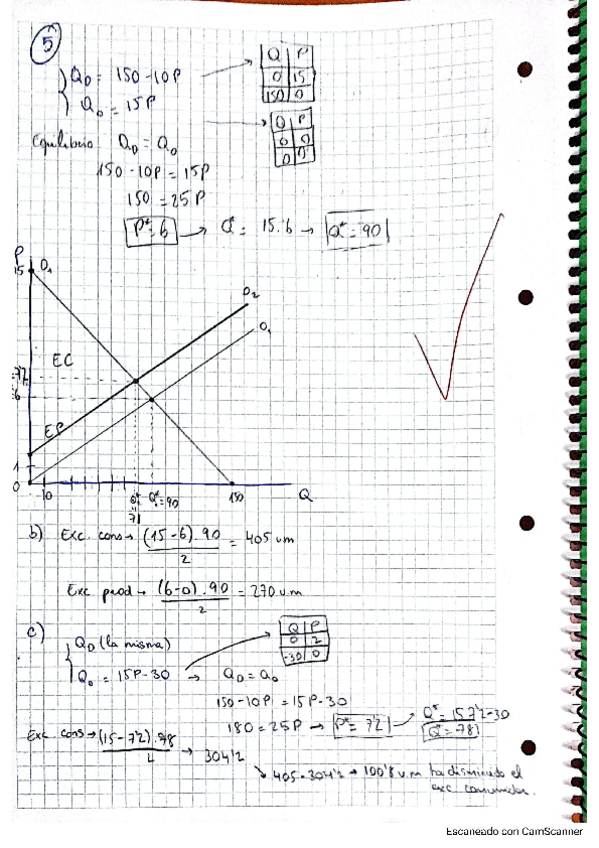 5
Q_D = 150 - 10P
Q_o = 15P
Q P
0 15
150 0
Q P
0 0
0 0
Equilibrio Q_D = Q_o
150 - 10P = 15P
150 = 25P
P* = 6 → Q* = 15·6 → Q* = 90
P
15
D_1
O_2
O_1
EC
7'2
6
EP
1
0
10
Q* = 90
150
Q
b) Exc. cons → (15-6)·90 / 2 = 405 u.m
Exc prod → (6-0)·90 / 2 = 270 u.m
c) Q_D (la misma)
Q_o = 15P - 30 → Q_D = Q_o
Q P
0 2
-30 0
150 - 10P = 15P - 30
180 = 25P → P* = 7'2
Q* = 15·7'2 - 30
Q* = 78
Exc cons → (15 - 7'2)·78 / 2 → 304'2
405 - 304'2 → 100'8 u.m ha disminuido el
exc consumidor.
Escaneado con CamScanner